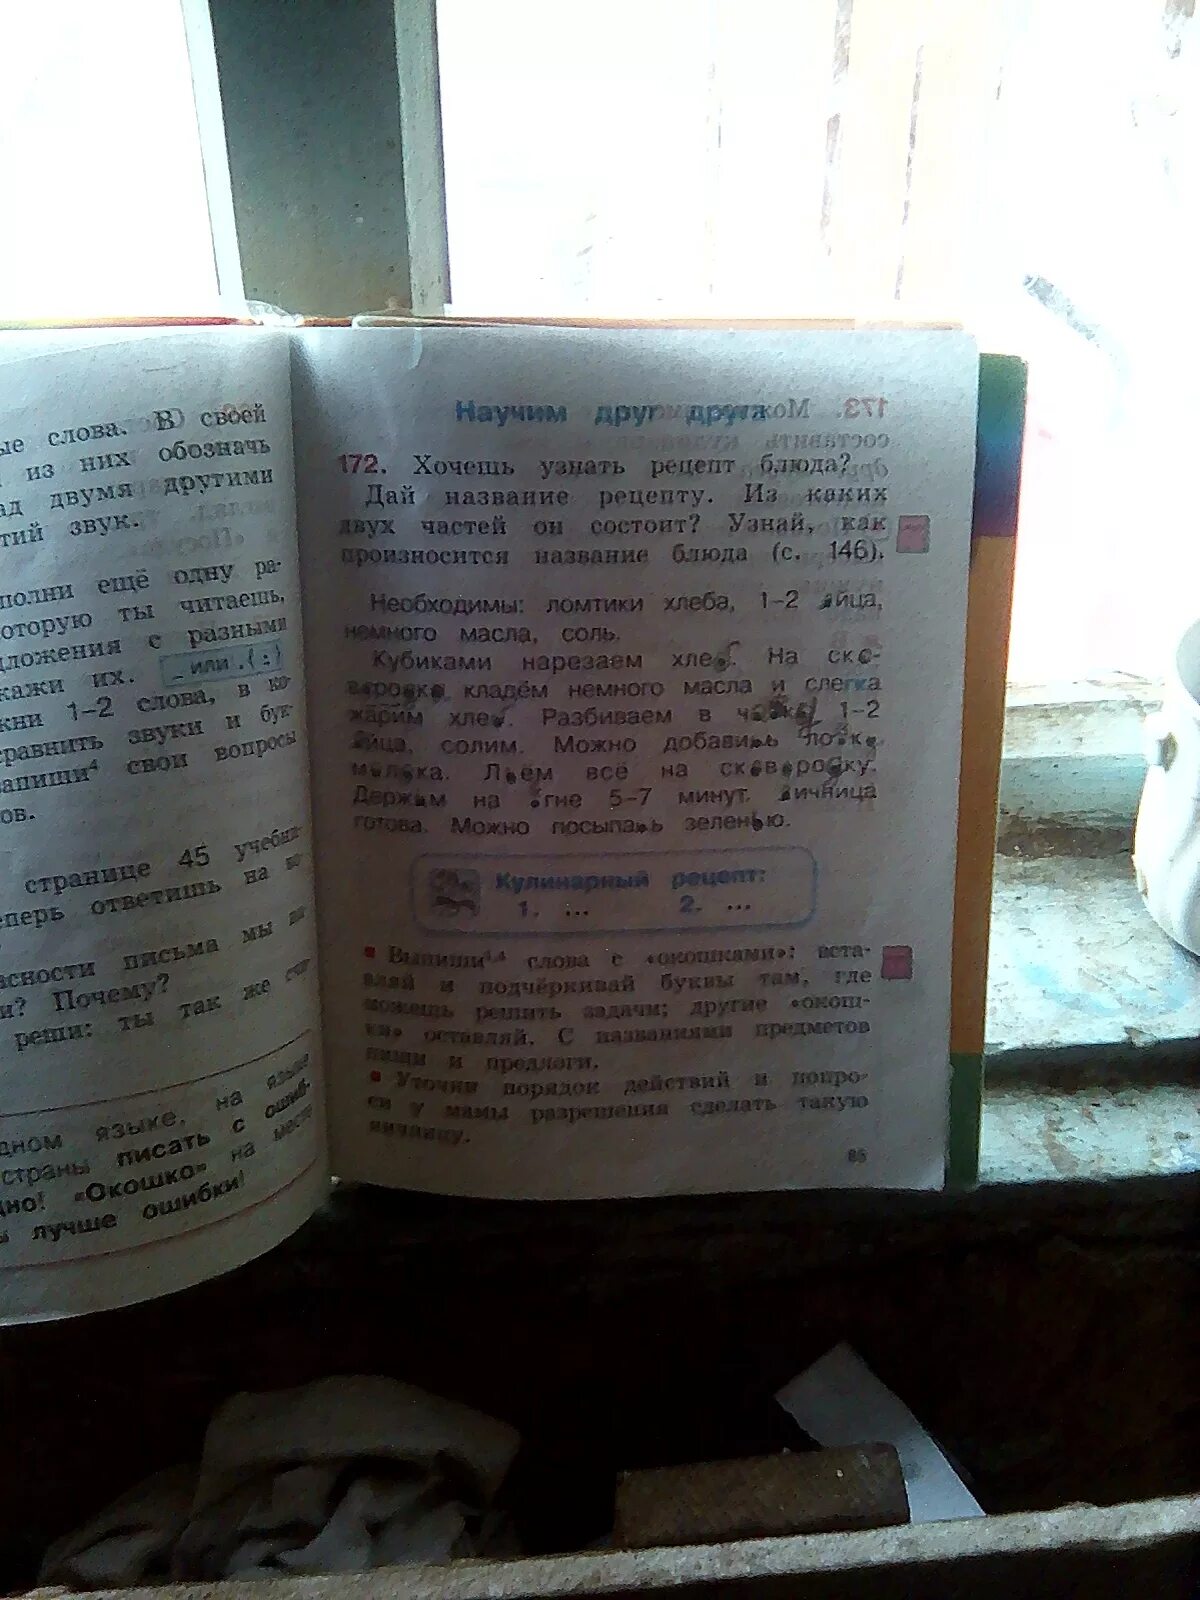 ые слова. В своей
из них обозначь
ад двумя другими
тий звук.
полни ещё одну ра-
которую ты читаешь,
дложения с разными
кажи их. _ или .(:)
кни 1–2 слова, в ко-
сравнить звуки и бук-
апиши⁴ свои вопросы
ов.
странице 45 учебни-
еперь ответишь на во-
асности письма мы
и? Почему?
реши: ты так же
дном языке, на языке
страны писать с ошиб.
дно! «Окошко» на месте
ы лучше ошибки!
Научим друг друга
172. Хочешь узнать рецепт блюда?
Дай название рецепту. Из каких
двух частей он состоит? Узнай, как
произносится название блюда (с. 146).
Необходимы: ломтики хлеба, 1–2 яйца,
немного масла, соль.
Кубиками нарезаем хле. На ско-
вородке кладём немного масла и слегка
жарим хле. Разбиваем в 1–2
яйца, солим. Можно добавить
молока. Льём всё на сковородку.
Держим на огне 5–7 минут. Яичница
готова. Можно посыпать зеленью.
Кулинарный рецепт:
1. ... 2. ...
Выпиши¹,⁴ слова с «окошками»: встав-
ляй и подчёркивай буквы там, где
можешь решить задачи; другие «окош-
ки» оставляй. С названиями предметов
пиши и предлоги.
Уточни порядок действий и попро-
си у мамы разрешения сделать такую
яичницу.
85
173.
составить